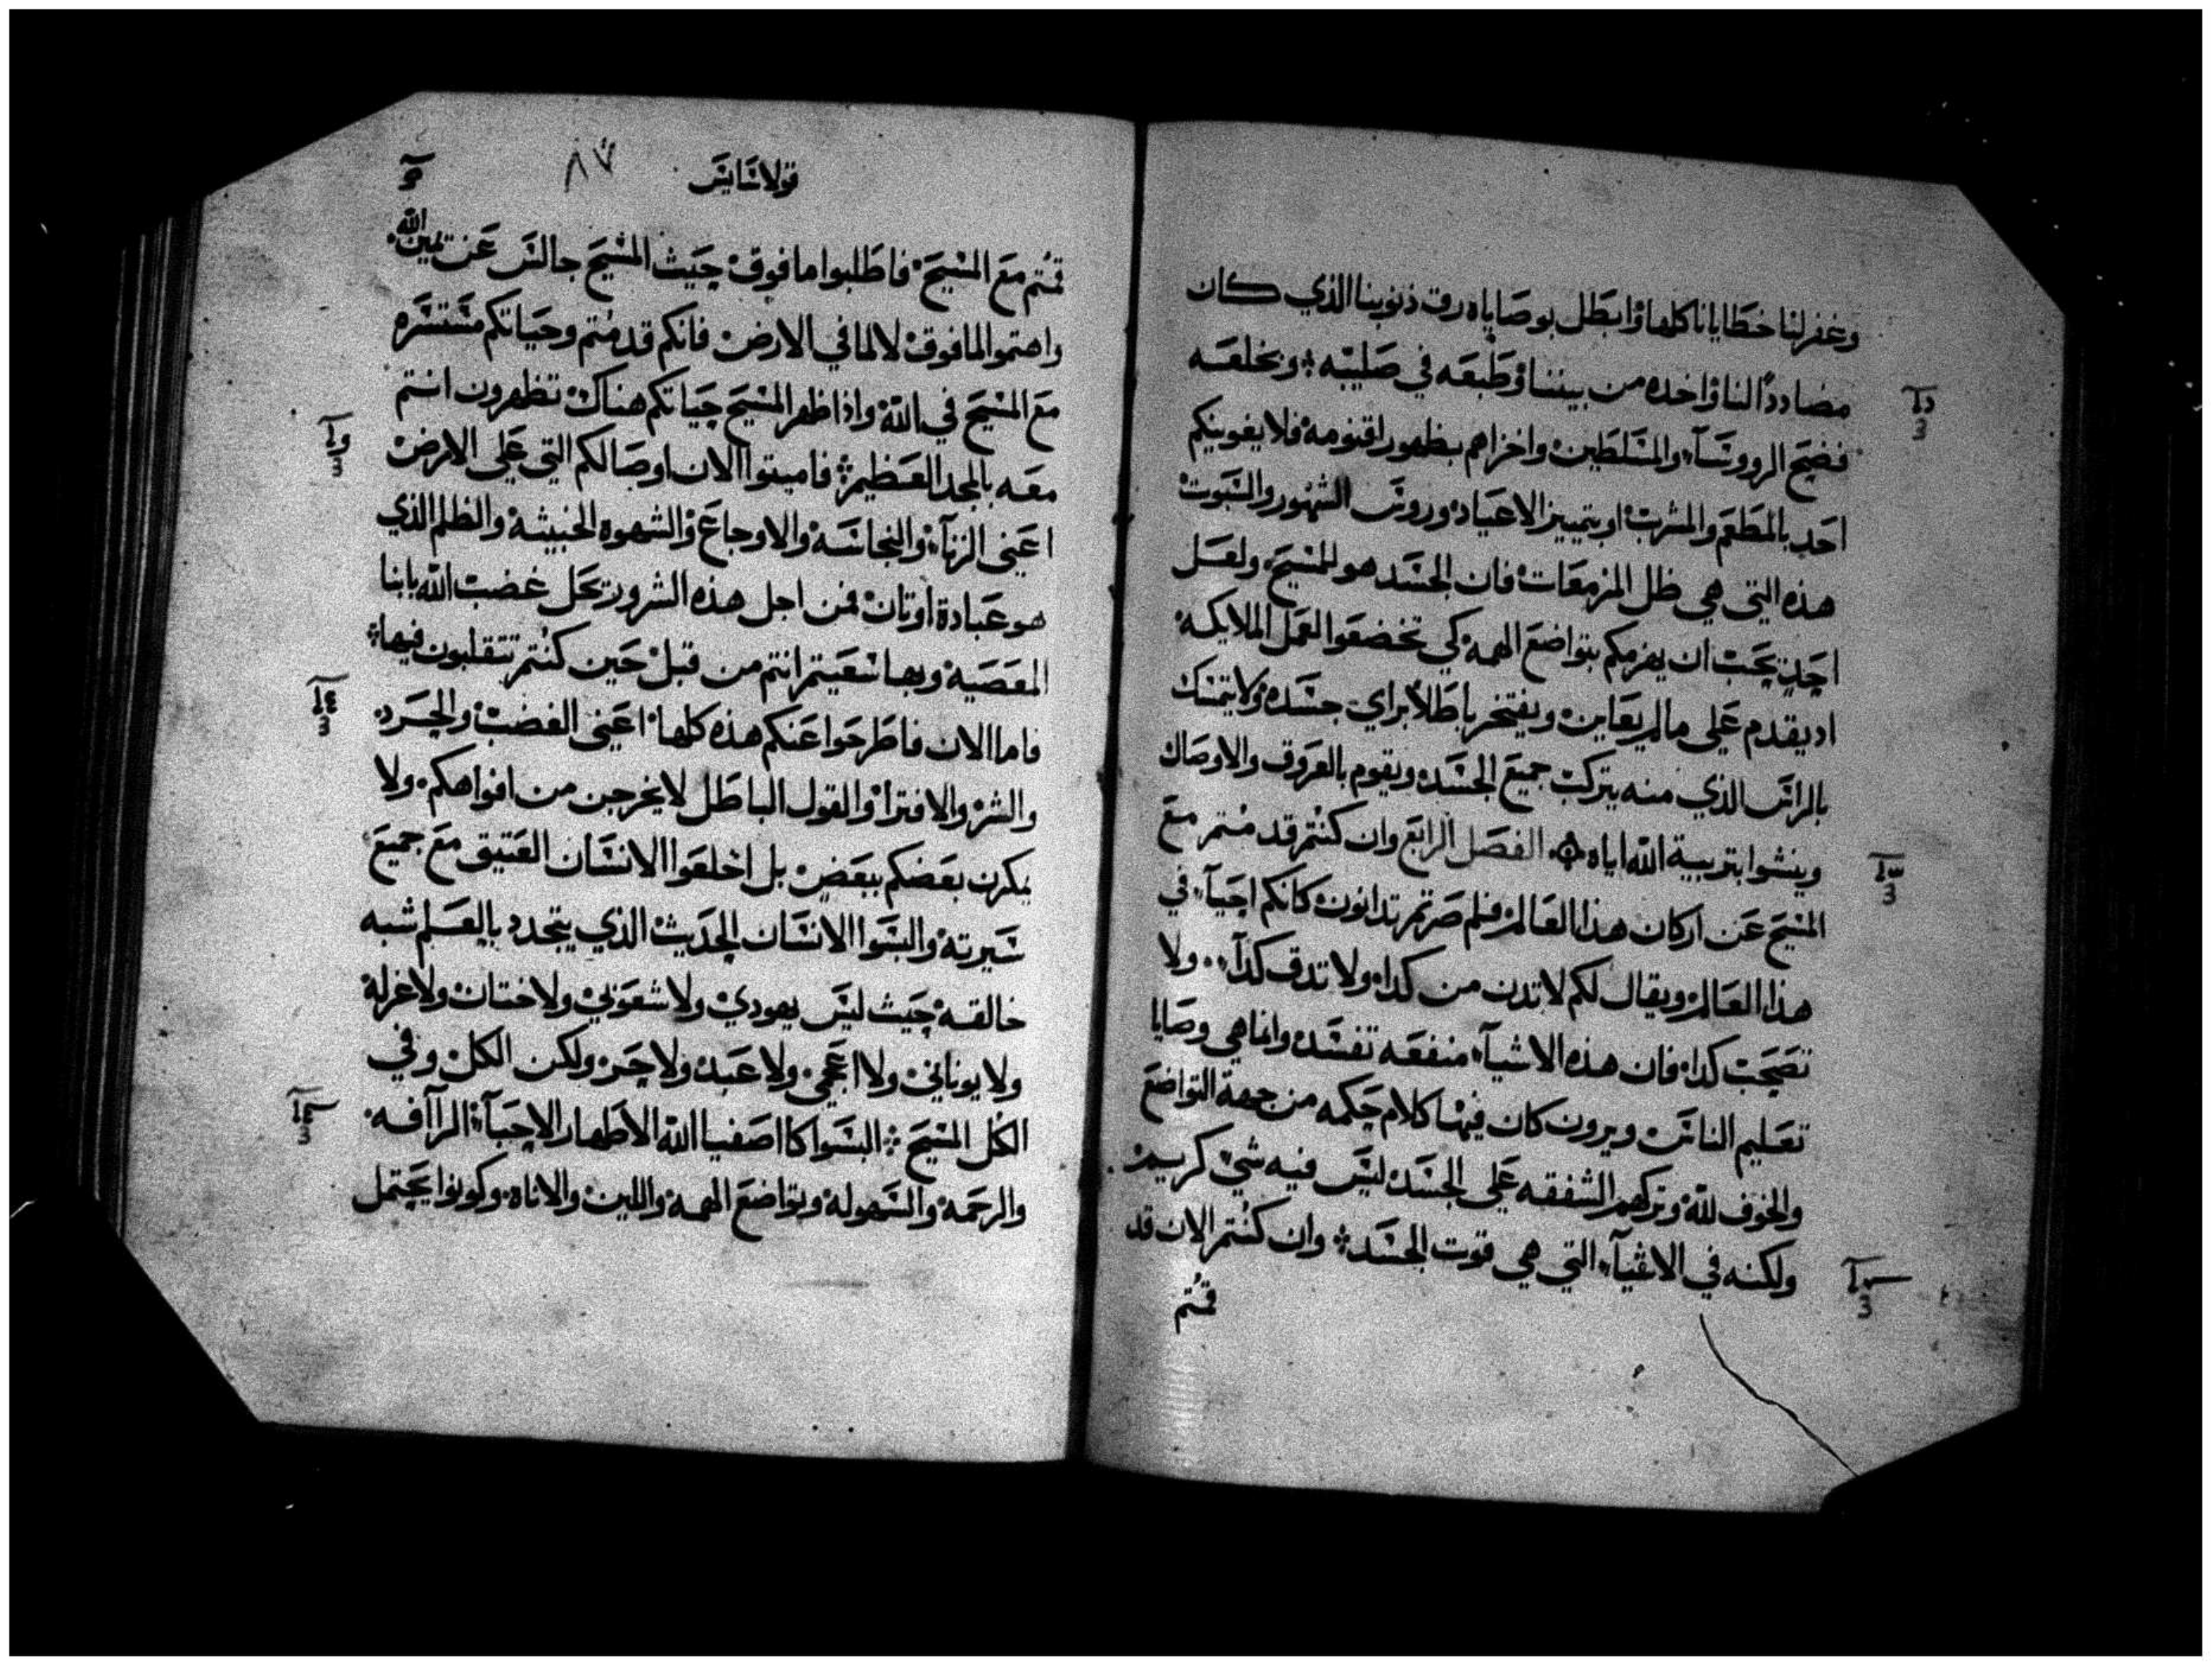 وغفر لنا خطايانا كلها وابطل بوصاياه رق ذنوبنا الذي كان
مضاددًا لنا واخده من بيننا وطبعه في صليبه ؛ وبخلعه
فضح الرووسآء والمسلطين واخزاهم بظهور اقنومه فلا يغوينكم
احد بالمطعم والمشرب او بتمييز الاعياد وروس الشهور والسبوت
هذه التي هي ظل المزمعات فان الجسد هو المسيح ولعل
احد يحب ان يهزمكم بتواضع الهمه كي تخضعوا لعمل الملايكه
اد يقدم على ما لم يعاين ويفتخر باطلا براي جسده ولا يتمسك
بالراس الذي منه يتركب جميع الجسد ويقوم بالعروق والاوصال
وينشوا بتربية الله اياه الفصل الرابع وان كنتم قد متم مع
المسيح عن اركان هذا العالم فلم صرتم تدانون كانكم احيآء في
هذا العالم ويقال لكم لا تدن من كدا ولا تدق كدآ ولا
تصحب كدا فان هذه الاشيآء منفعه تفسد وانما هي وصايا
تعليم الناس ويرون كان فيها كلام حكمه من جهة التواضع
والخوف لله وتركهم الشفقه على الجسد ليس فيه شي كريم
ولكنه في الاشيآء التي هي قوت الجسد ؛ وان كنتم الان قد
قمتم
قولاسايس
٨٧
قمتم مع المسيح فاطلبوا ما فوق حيث المسيح جالس عن يمين الله
واهتموا لما فوق لا لما في الارض فانكم قد متم وحياتكم مستتره
مع المسيح في الله واذا ظهر المسيح حياتكم هناك تظهرون انتم
معه بالمجد العظيم ؛ فاميتوا الان اوصالكم التي على الارض
اعني الزنآء والنجاسه والاوجاع والشهوه الخبيثه والظلم الذي
هو عبادة اوتان فمن اجل هذه الشرور تحل غضب الله بابنا
المعصيه وبها سعيتم انتم من قبل حين كنتم تتقلبون فيها ؛
فاما الان فاطرحوا عنكم هذه كلها اعني الغضب والحرد
والشر والافترا والقول الباطل لا يخرجن من افواهكم ولا
يكرن بعضكم ببعض بل اخلعوا الانسان العتيق مع جميع
سيرته والبسوا الانسان الحديث الذي يتجدد بالعلم شبه
خالقه حيث ليس يهودي ولا شعوبي ولا ختان ولا غرله
ولا يوناني ولا اعجمي ولا عبد ولا حر ولكن الكل وفي
الكل المسيح ؛ البسوا كاصفيا الله الاطهار الاحبآء الرآافه
والرحمه والسهوله وتواضع الهمه واللين والاناه وكونوا يحتمل